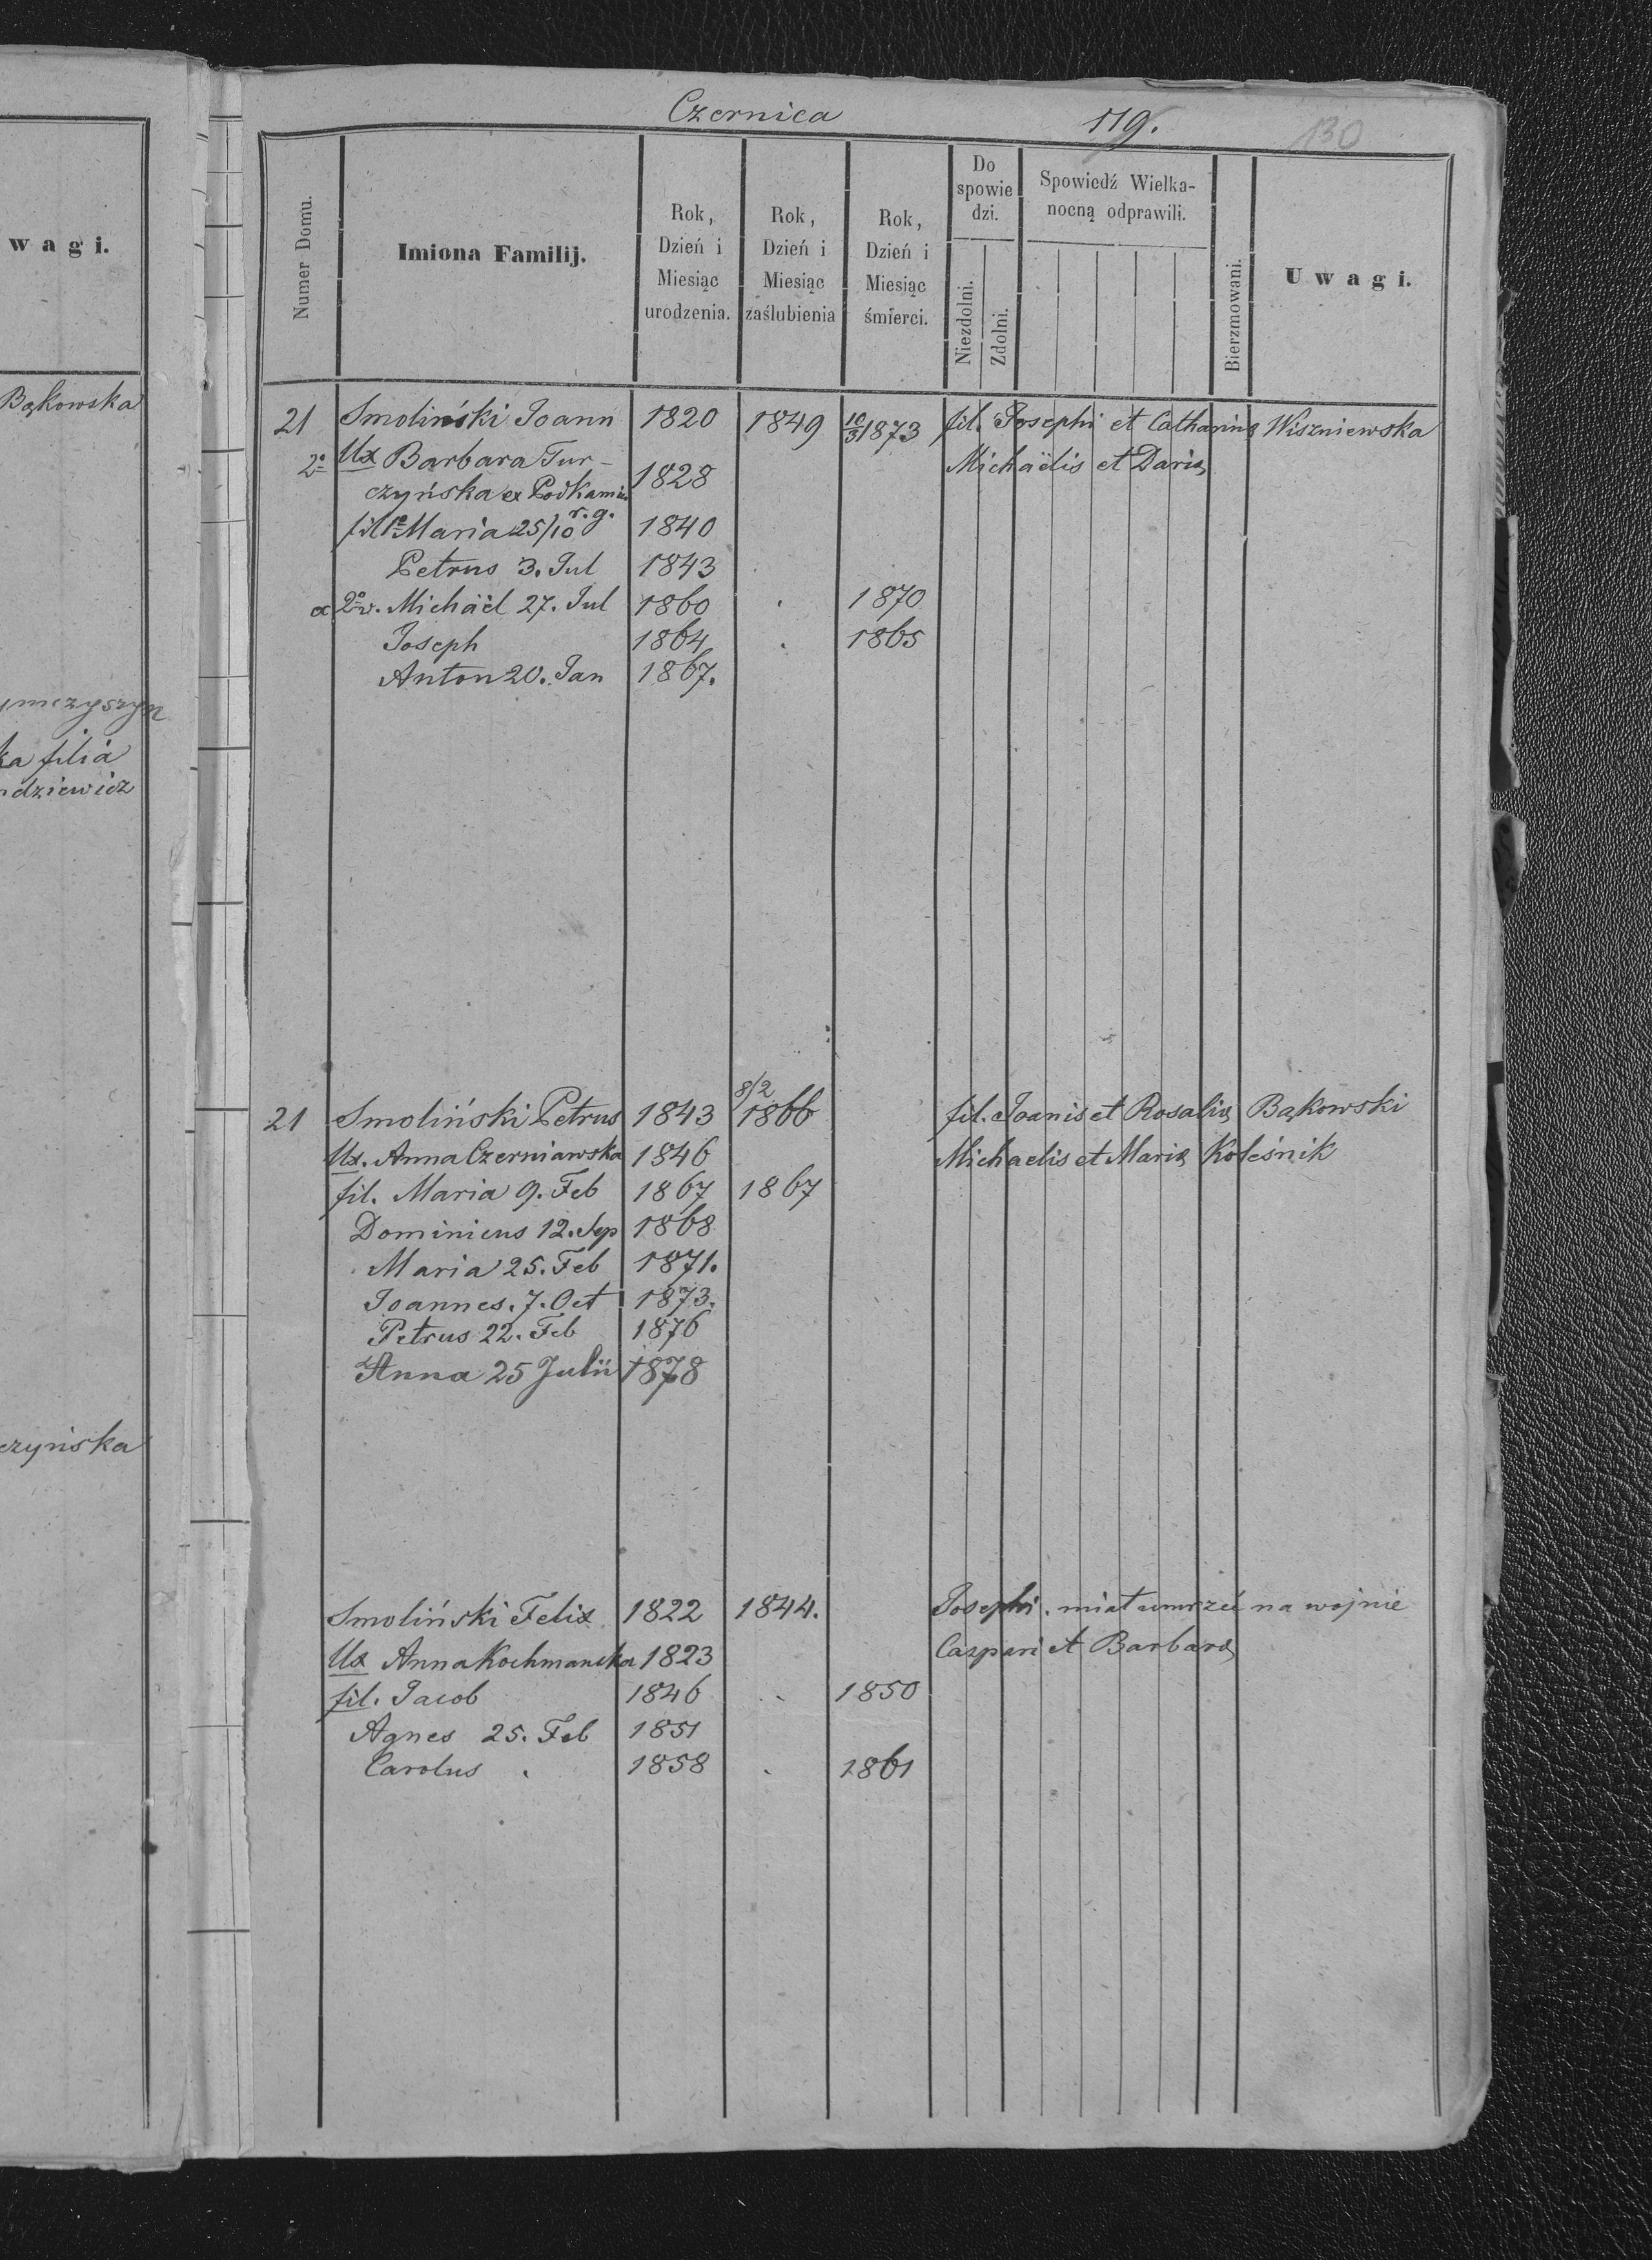 w a g i.
Bąkowska
ymczyszyn
ka filia
ndziewicz
czyńska
Czernica 119. 130
Numer Domu.
Imiona Familij.
Rok, Dzień i Miesiąc urodzenia.
Rok, Dzień i Miesiąc zaślubienia
Rok, Dzień i Miesiąc śmierci.
Do spowiedzi.
Niezdolni.
Zdolni.
Spowiedź Wielka-
nocną odprawili.
Bierzmowani.
U w a g i.
21 Smoliński Joann 1820 1849 10/3 1873 fil. Josephi et Catharinę Wiszniewska
2o Ux Barbara Tur- Michaëlis et Darię
czyńska ex Podkamie 1828
fil 1o Maria 25/10 r.g. 1840
Petrus 3. Jul 1843
ex 2o v. Michaël 27. Jul 1860 . 1870
Joseph 1864 . 1865
Anton 20. Jan 1867.
21 Smoliński Petrus 1843 8/2 1866 fil. Joanis et Rosalię Bąkowski
Ux. Anna Czerniawska 1846 Michaelis et Marię Koleśnik
fil. Maria 9. Feb 1867 1867
Dominicus 12. Sep 1868
Maria 25. Feb 1871.
Joannes. 7. Oct 1873.
Petrus 22. Feb 1876
Anna 25 Julii 1878
Smoliński Felix 1822 1844. Josephi. miał umrzeć na wojnie
Ux Anna Kochmanska 1823 Caspari et Barbarę
fil. Jacob 1846 .. 1850
Agnes 25. Feb 1851
Carolus . 1858 . 1861